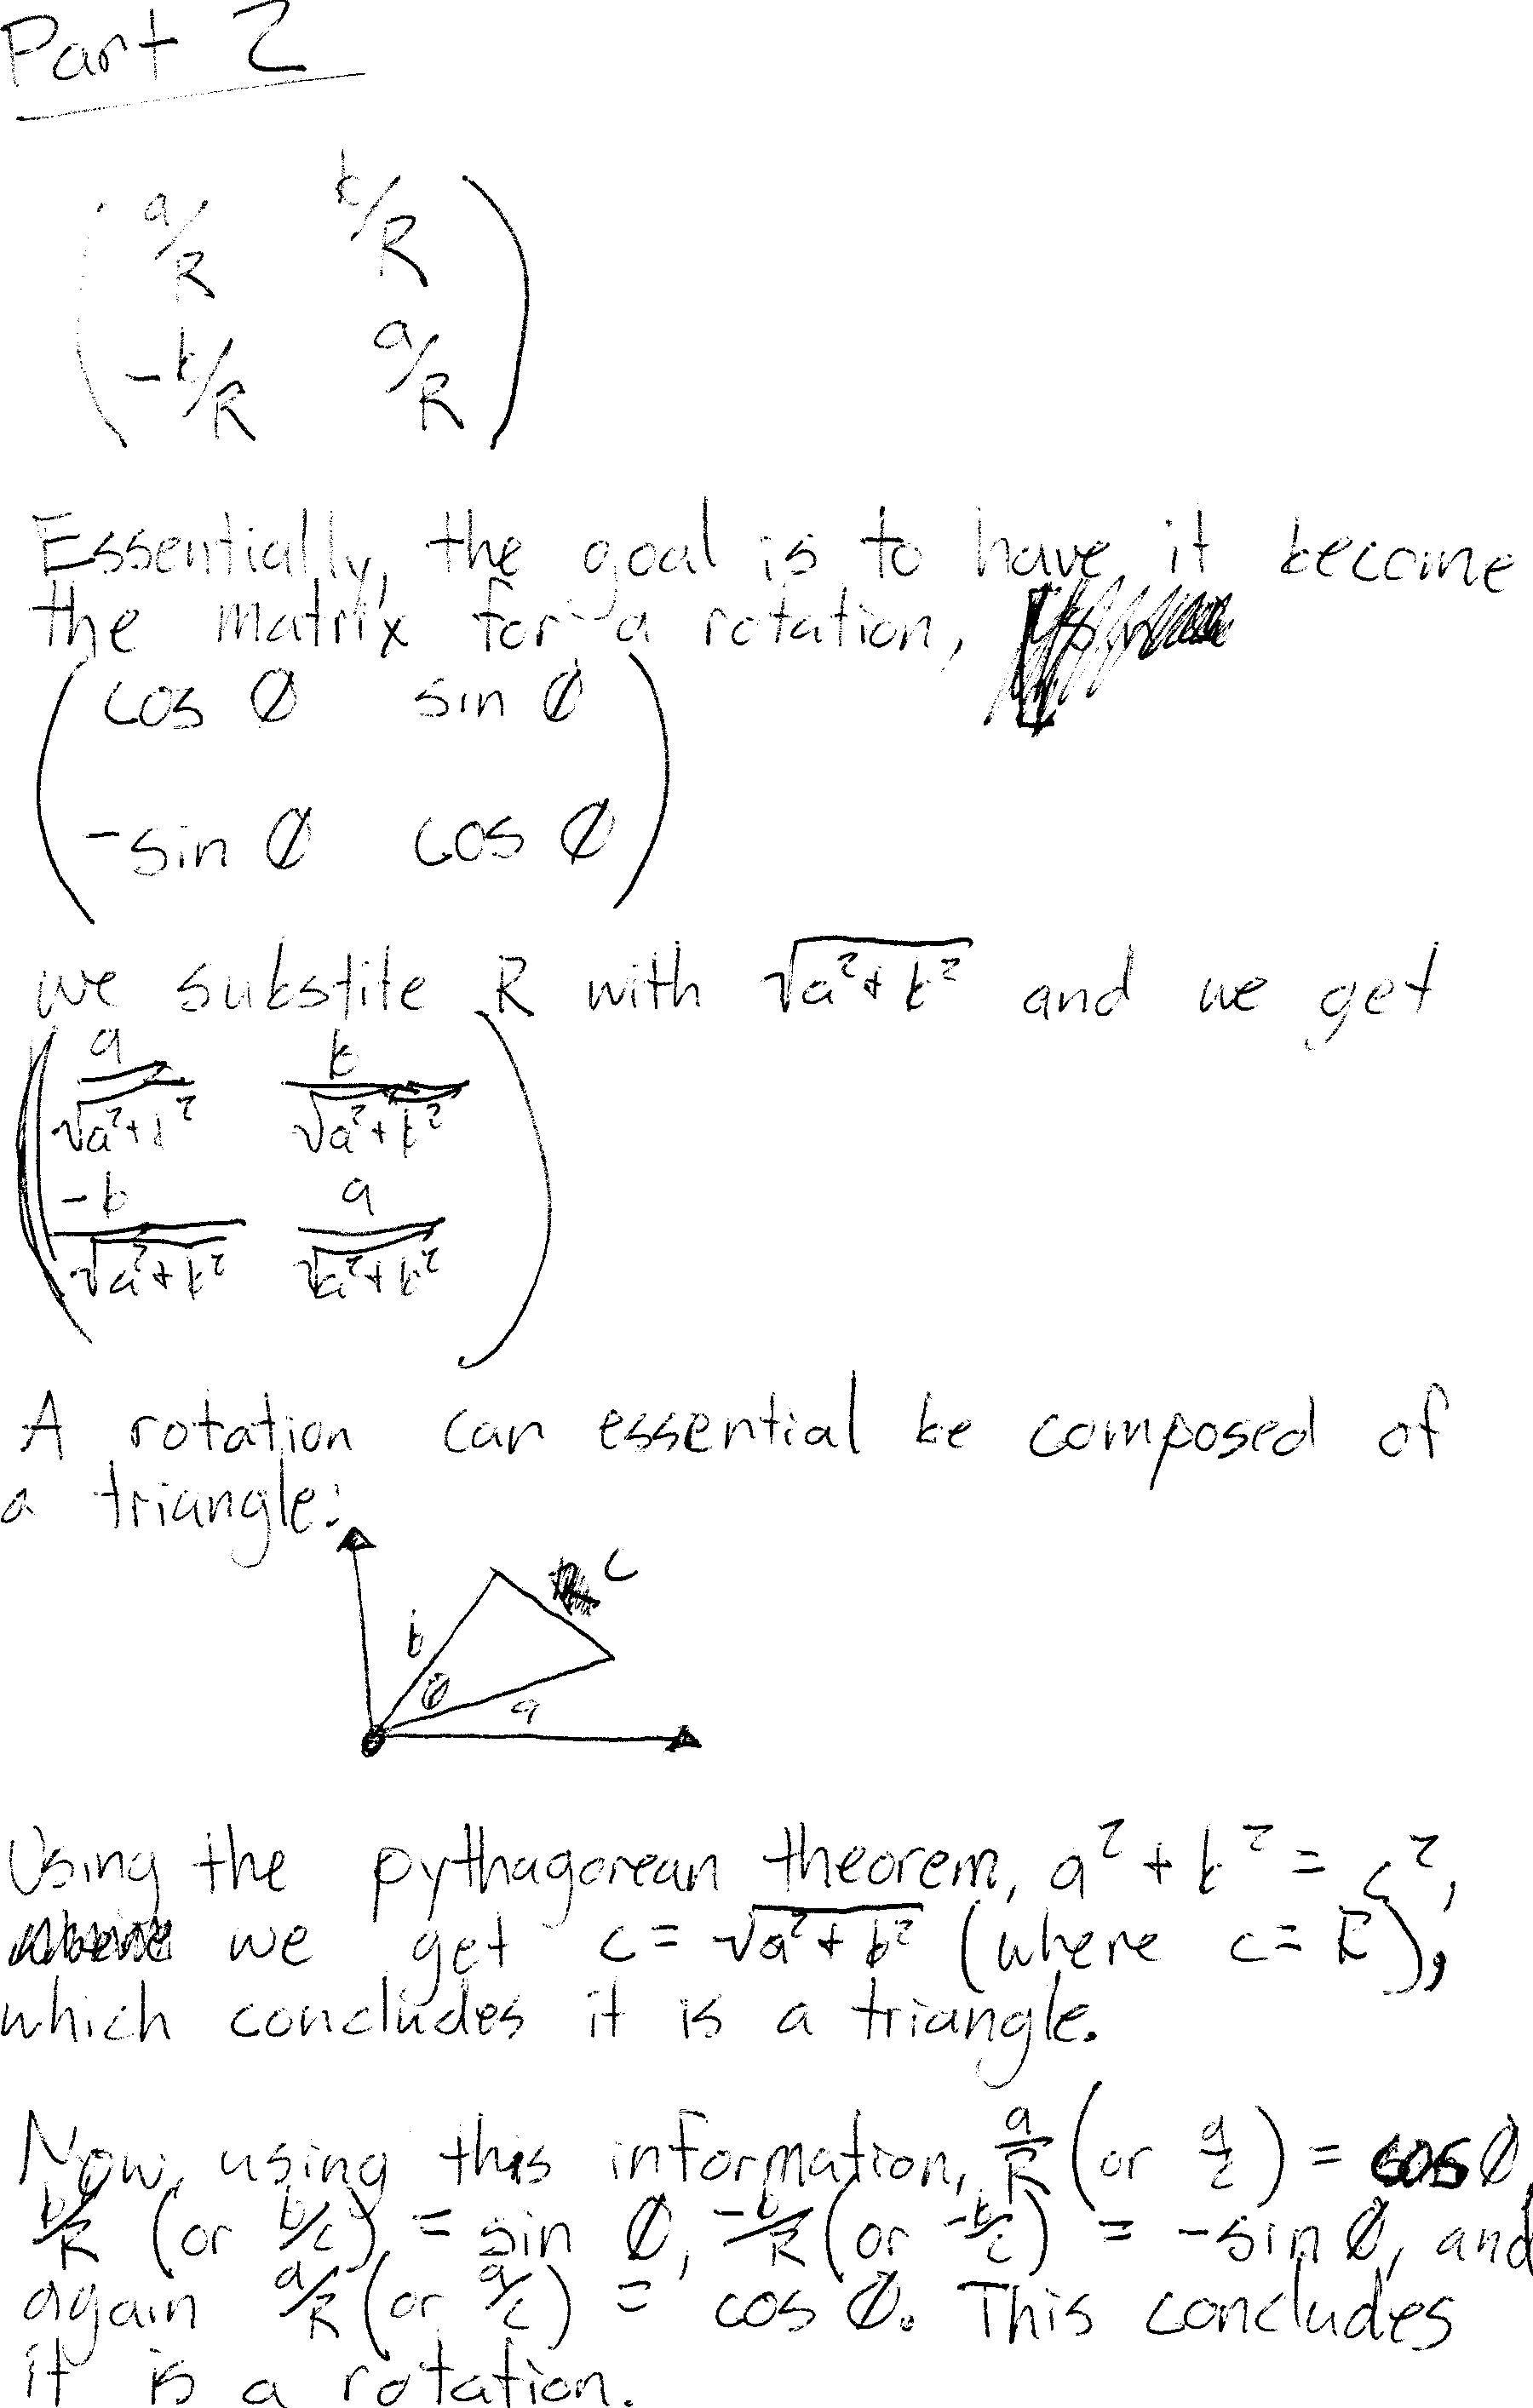 Part 2
a/R b/R
-b/R a/R
Essentially, the goal is to have it become
the matrix for a rotation,
cos Ø sin Ø
-sin Ø cos Ø
we substite R with √a²+b² and we get
a/√a²+b² b/√a²+b²
-b/√a²+b² a/√a²+b²
A rotation can essential be composed of
a triangle:
c
b
Ø
a
Using the pythagorean theorem, a²+b²=c²,
we get c=√a²+b² (where c=R),
which concludes it is a triangle.
Now, using this information, a/R (or a/c) = cos Ø,
b/R (or b/c) = sin Ø, -b/R (or -b/c) = -sin Ø, and
again a/R (or a/c) = cos Ø. This concludes
it is a rotation.